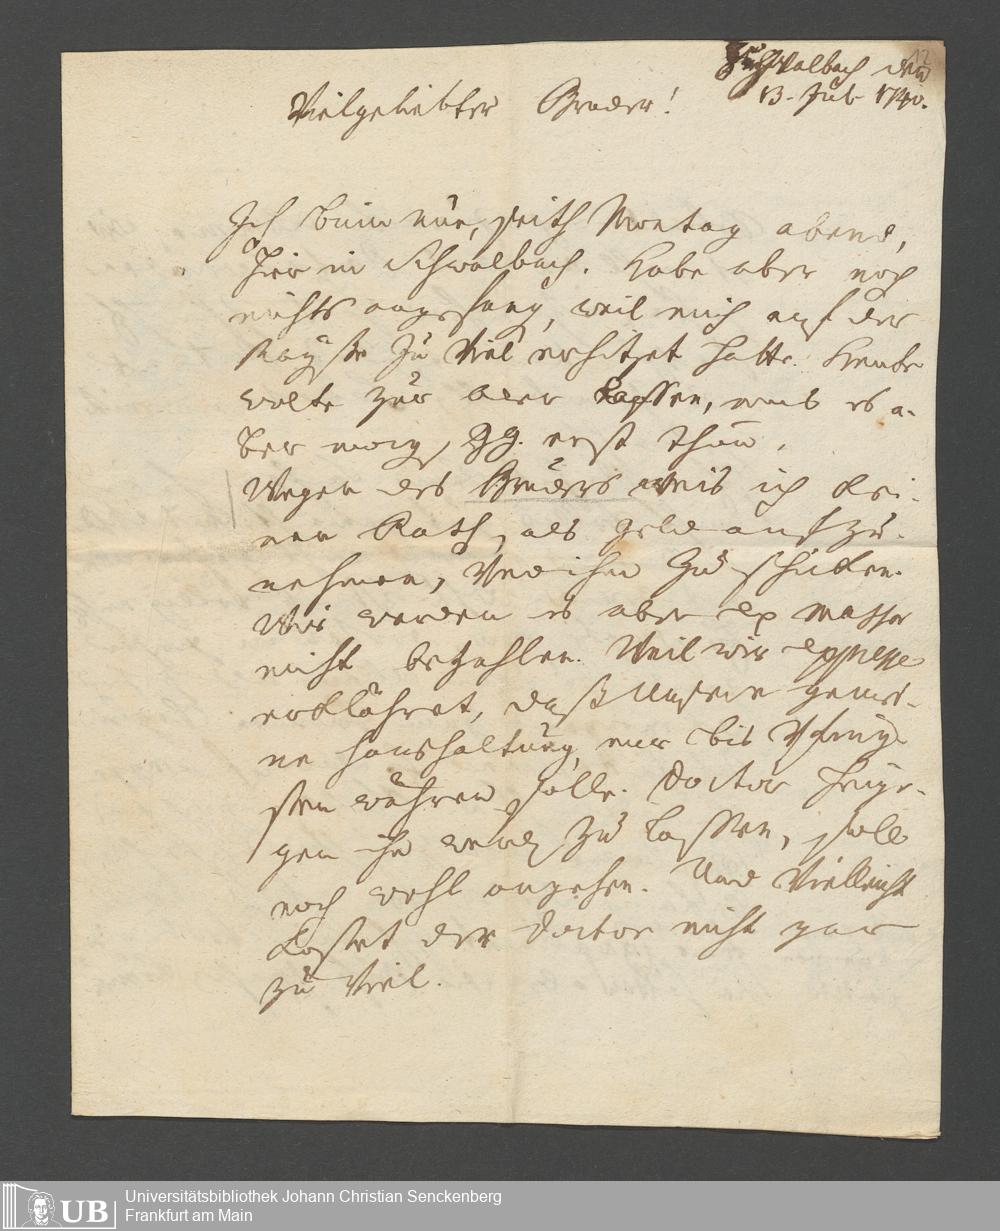 Schwalbach den
13. Jul. 1740.
12
Vielgeliebter Bruder!
Ich bin nun, seith Montag abend,
hier in Schwalbach. Habe aber noch
nichts angefang, weil mich auf der
Rayße zu Viel erhitzet hatte. Heute
wolte zur ader lassen, mus es a-
ber morg, gg. erst thun.
Wegen des Bruders weis ich kei-
nen Rath, als geld auf zu
nehmen, Und ihm zu schicken.
Wir werden es aber ex massa
nicht bezahlen. Weil wir expresse
erklähret, daß Unsere gemei-
ne haushaltung nur bis Pfing-
sten währen solle. Doctor
gen ihn werd zu lassen, soll
noch wohl angehen. Und Vielleicht
kostet der Doctor nicht gar
zu Viel.
UB
Universitätsbibliothek Johann Christian Senckenberg
Frankfurt am Main